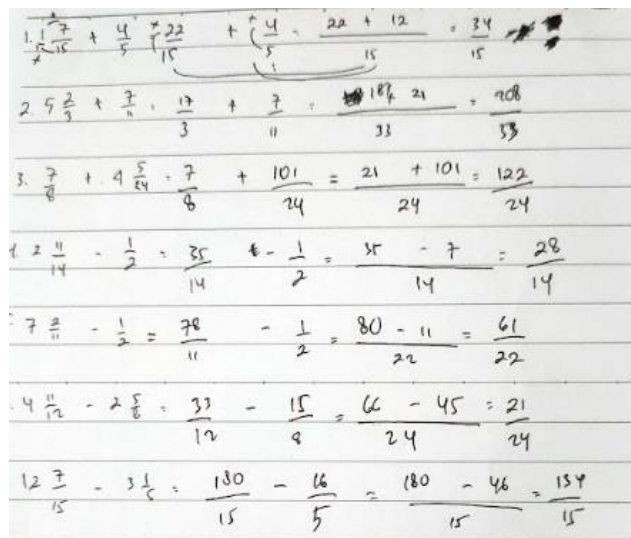 1. 1 7/15 + 4/5 = 22/15 + 4/5 = 22 + 12 / 15 = 34/15
2. 5 2/3 + 7/11 = 17/3 + 7/11 = 187 21 / 33 = 208/33
3. 7/8 + 4 5/24 = 7/8 + 101/24 = 21 + 101 / 24 = 122/24
2 11/14 - 1/2 = 35/14 - 1/2 = 35 - 7 / 14 = 28/14
7 2/11 - 1/2 = 78/11 - 1/2 = 80 - 11 / 22 = 61/22
4 11/12 - 2 5/8 = 33/12 - 15/8 = 66 - 45 / 24 = 21/24
12 7/15 - 3 1/5 = 180/15 - 16/5 = 180 - 46 / 15 = 134/15